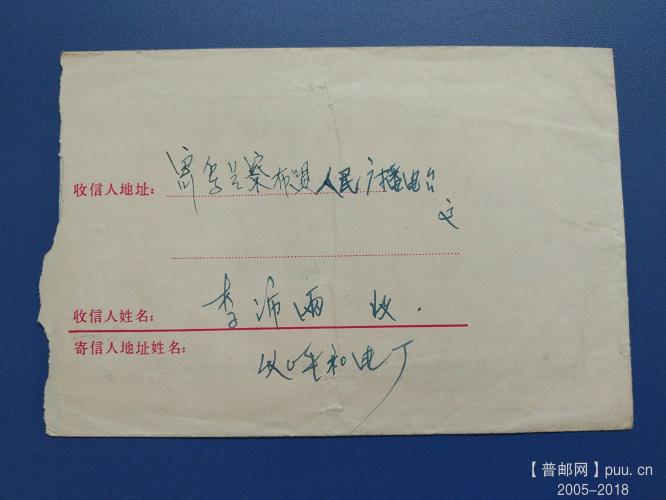 收信人地址：寄乌兰察布盟人民广播电台
交
收信人姓名：李沛雨 收.
寄信人地址姓名：
呼和电厂
【普邮网】puu.cn
2005-2018